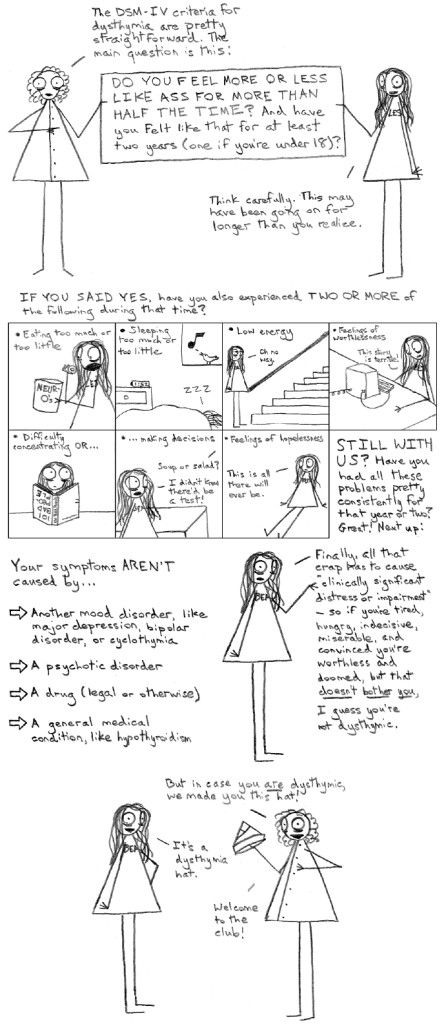 The DSM-IV criteria for
dysthymia are pretty
straightforward. The
main question is this:
DO YOU FEEL MORE OR LESS
LIKE ASS FOR MORE THAN
HALF THE TIME? And have
you felt like that for at least
two years (one if you're under 18)?
LES
Think carefully. This may
have been going on for
longer than you realize.
IF YOU SAID YES, have you also experienced TWO OR MORE of
the following during that time?
• Eating too much or
too little
NEUR-
O's
• Sleeping
too much or
too little
ZZZ
• Low energy
Oh no
way.
• Feelings of
worthlessness
This story
is terrible!
• Difficulty
concentrating OR...
• ... making decisions
Soup or salad?
I didn't know
there'd be
a test!
• Feelings of hopelessness
This is all
there will
ever be.
STILL WITH
US? Have you
had all these
problems pretty
consistently for
that year or two?
Great! Next up:
Your symptoms AREN'T
caused by...
⇨ Another mood disorder, like
major depression, bipolar
disorder, or cyclothymia
⇨ A psychotic disorder
⇨ A drug (legal or otherwise)
⇨ A general medical
condition, like hypothyroidism
Finally, all that
crap has to cause
"clinically significant
distress or impairment"
– so if you're tired,
hungry, indecisive,
miserable, and
convinced you're
worthless and
doomed, but that
doesn't bother you,
I guess you're
not dysthymic.
But in case you are dysthymic,
we made you this hat!
It's a
dysthymia
hat.
Welcome
to the
club!